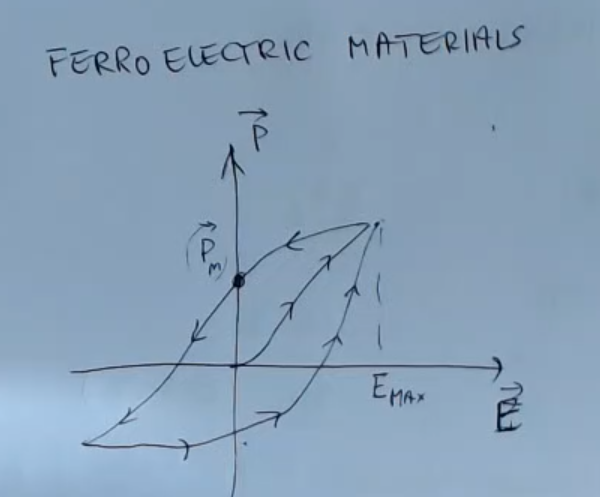 FERRO ELECTRIC MATERIALS
P
(P_m)
E_MAX
E